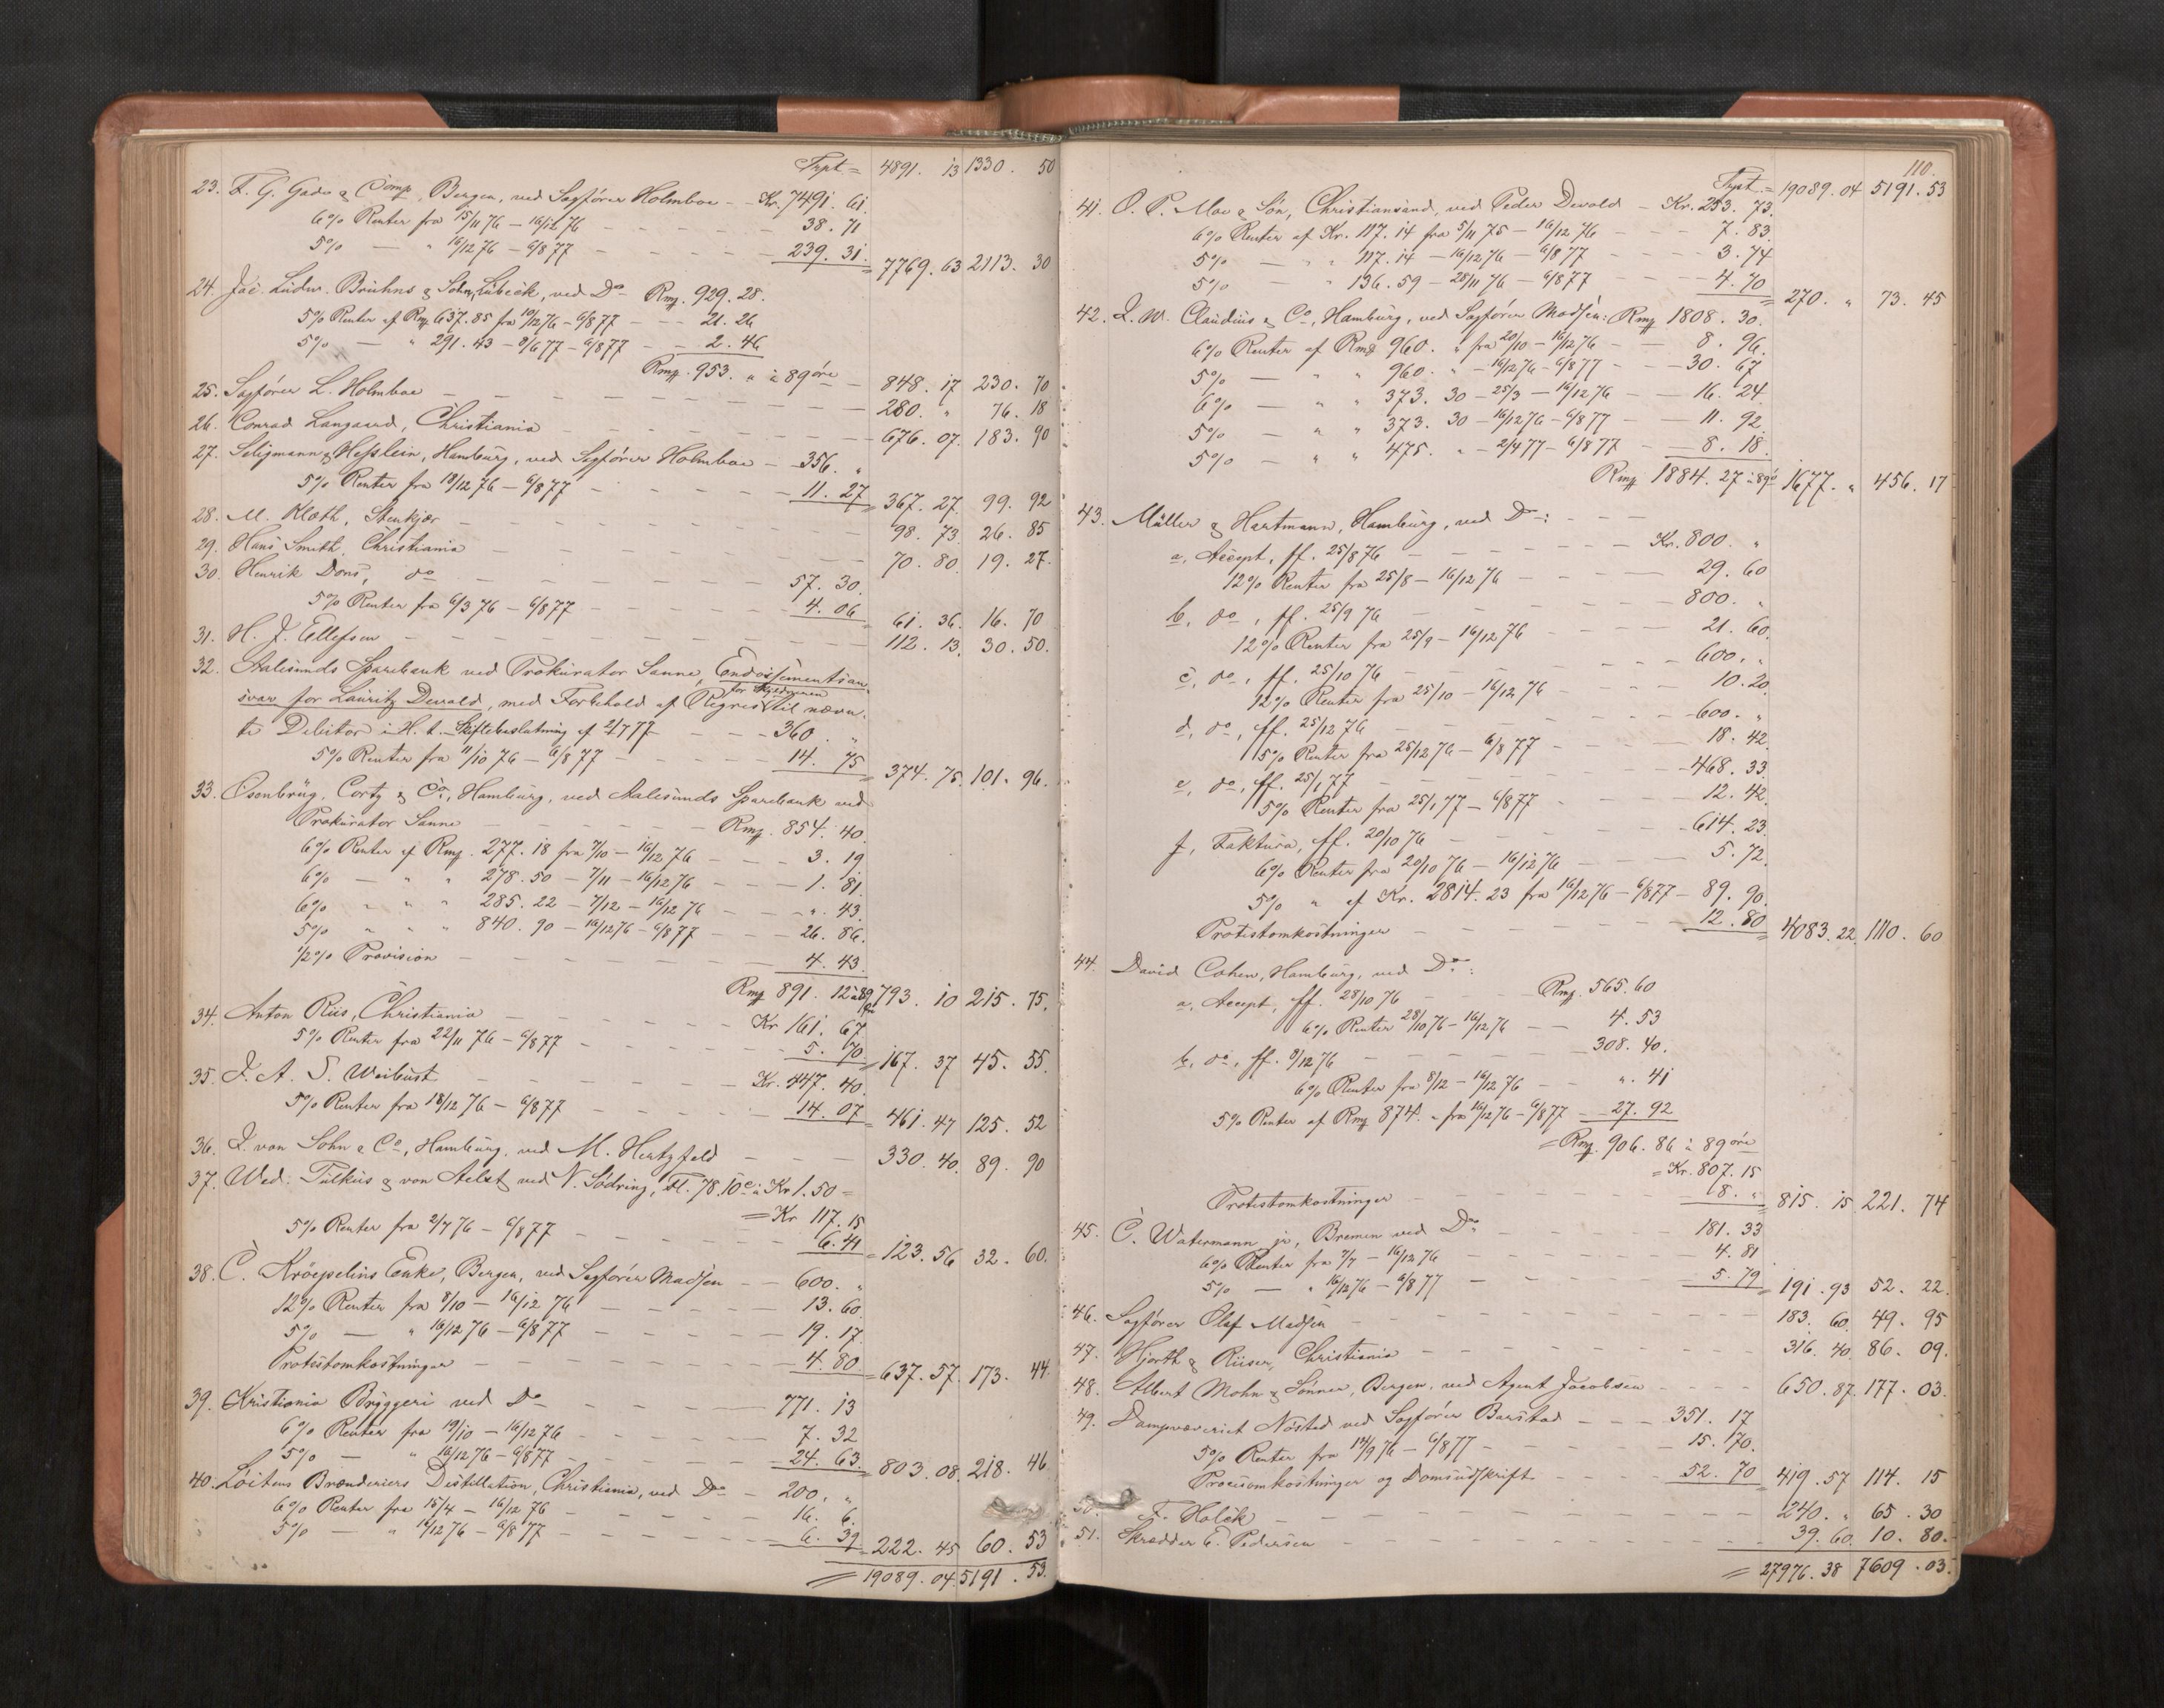 Trpt. = 4891. 13 1330. 50
23. F. G. Gade & Comp, Bergen, ved Sagfører Holmboe - Kr. 7491. 61.
6% Renter fra 15/11 76 - 16/12 76 - - - 38. 71
5% — " 16/12 76 - 6/8 77 - - - 239. 31. = 7769. 63 2113. 30
24. Jac. Ludw. Bruhns & Sohn, Lübeck, ved Do - Rmk. 929. 28.
5% Renter af Rmk 637. 85 fra 10/12 76 - 6/8 77 - - 21. 26
5% — " 291. 43 - 8/6 77 - 6/8 77 - - 2. 46
Rmk. 953. " à 89 øre - 848. 17 230. 70
25. Sagfører L. Holmboe - - - 280. " 76. 18
26. Conrad Langaard, Christiania - - - 676. 07. 183. 90
27. Seligmann & Hesslein, Hamburg, ved Sagfører Holmboe - 356. "
5% Renter fra 18/12 76 - 6/8 77 - - - 11. 27 = 367. 27. 99. 92
28. M. Klæth, Stenkjær - - - 98. 73. 26. 85
29. Hans Smith, Christiania - - - 70. 80. 19. 27.
30. Henrik Dons, do - - - 57. 30.
5% Renter fra 6/3 76 - 6/8 77 - - - 4. 06 = 61. 36. 16. 70
31. H. J. Ellefsen - - - 112. 13. 30. 50.
32. Aalesunds Sparebank ved Prokurator Sanne, Endossementsan-
for Skyldneren
svar for Lauritz Devold, med Forbehold af Regres til nævn-
te Debitor i H. t. Skiftebeslutning af 2/7 77 - - - 360. "
5% Renter fra 11/10 76 - 6/8 77 - - - 14. 75 = 374. 75. 101. 96.
33. Osenbrüg, Cortz & Co, Hamburg, ved Aalesunds Sparebank ved
Prokurator Sanne - - - Rmk. 854. 40.
6% Renter af Rmk. 277. 18 fra 7/10 - 16/12 76 - - - 3. 19
6% — " " 278. 50 - 7/11 - 16/12 76 - - - 1. 81.
6% " " " 285. 22 - 7/12 - 16/12 76 - - - ". 43.
5% " " " 840. 90 - 16/12 76 - 6/8 77 - - - 26. 86.
1/2% Provision - - - 4. 43.
Rmk 891. 12 à 89 øre 793. 10 215. 75.
34. Anton Riis, Christiania - - - Kr 161. 67
5% Renter fra 22/11 76 - 6/8 77 - - - 5. 70 = 167. 37 45. 55.
35. J. A. S. Weibust - - - Kr. 447. 40.
5% Renter fra 18/12 76 - 6/8 77 - - - 14. 07 = 461. 47 125. 52
36. J. von Sohn & Co, Hamburg, ved M. Hertzfeld - - - 330. 40. 89. 90
37. Wed. Tulkus & von Aelst ved N. Södring, Fl. 78. 10 c. à Kr 1. 50 =
= Kr 117. 15
5% Renter fra 2/7 76 - 6/8 77 - - - 6. 41 = 123. 56 32. 60.
38. C. Kröepelins Enke, Bergen, ved Sagfører Madsen - - 600. "
12% Renter fra 8/10 - 16/12 76 - - - 13. 60
5% — " 16/12 76 - 6/8 77 - - - 19. 17.
Protestomkostninger - - - 4. 80 = 637. 57. 173. 44.
39. Kristiania Bryggeri ved Do - - - 771. 13
6% Renter fra 19/10 - 16/12 76 - - - 7. 32
5% — " 16/12 76 - 6/8 77 - - - 24. 63. = 803. 08. 218. 46
40. Löitens Brænderiers Destillation, Christiania, ved Do - 200. "
6% Renter fra 15/4 - 16/12 76 - - - 16. 6.
5% — " 16/12 76 - 6/8 77 - - - 6. 39 = 222. 45 60. 53
= 19089. 04. 5191. 53.
110.
Trpt. = 19089. 04 5191. 53
41. O. P. Moe & Søn, Christiansand, ved Peder Devold - Kr. 253. 73.
6% Renter af Kr. 117. 14 fra 5/11 75 - 16/12 76 - - - 7. 83.
5% — " " 117. 14 - 16/12 76 - 6/8 77 - - - 3. 74
5% — " 136. 59 - 28/11 76 - 6/8 77 - - - 4. 70 = 270. " 73. 45
42. J. W. Claudius & Co, Hamburg, ved Sagfører Madsen: Rmk 1808. 30.
6% Renter af Rmk 960. " fra 20/10 - 16/12 76 - - 8. 96.
5% — " " 960. " - 16/12 76 - 6/8 77 - - 30. 67
6% — " " 373. 30 - 25/3 - 16/12 76 - - 16. 24
5% — " " 373. 30 - 16/12 76 - 6/8 77 - - 11. 92.
5% — " " 475. " - 2/4 77 - 6/8 77 - - 8. 18.
Rmk 1884. 27 à 89 ø 1677. " 456. 17
43. Müller & Hartmann, Hamburg, ved Do:
a, Accept, ff. 25/8 76 - - - Kr. 800. "
12% Renter fra 25/8 - 16/12 76 - - - 29. 60
b, do, ff. 25/9 76 - - - 800. "
12% Renter fra 25/9 - 16/12 76 - - - 21. 60.
c, do, ff. 25/10 76 - - - 600. "
12% Renter fra 25/10 - 16/12 76 - - - 10. 20.
d, do, ff. 25/12 76 - - - 600. "
5% Renter fra 25/12 76 - 6/8 77 - - - 18. 42.
e, do, ff. 25/1 77 - - - 468. 33.
5% Renter fra 25/1 77 - 6/8 77 - - - 12. 42.
f, Faktura, ff. 20/10 76 - - - 614. 23.
6% Renter fra 20/10 76 - 16/12 76 - - - 5. 72.
5% " af Kr. 2814. 23 fra 16/12 76 - 6/8 77 - 89. 90.
Protestomkostninger - - - 12. 80 = 4083. 22. 1110. 60
44. David Cohen, Hamburg, ved Do:
a, Accept, ff. 28/10 76 - - - Rmk. 565. 60
6% Renter 28/10 76 - 16/12 76 - - 4. 53
b, do, ff. 8/12 76 - - - 308. 40.
6% Renter fra 8/12 - 16/12 76 - - ". 41
5% Renter af Rmk 874. " fra 16/12 76 - 6/8 77 - 27. 92
= Rmk 906. 86 à 89 øre
= Kr. 807. 15
Protestomkostninger - - - 8. " = 815. 15 221. 74
45. C. Watermann jr, Bremen ved Do - - - 181. 33
6% Renter fra 7/7 - 16/12 76 - - - 4. 81
5% — " 16/12 76 - 6/8 77 - - - 5. 79 = 191. 93 52. 22.
46. Sagfører Olaf Madsen - - - 183. 60. 49. 95
47. Hjorth & Riiser, Christiania - - - 316. 40. 86. 09.
48. Albert Mohn & Sønner, Bergen, ved Agent Jacobsen - - - 650. 87. 177. 03.
49. Dampvæveriet Nøsted ved Sagfører Barstad - - - 351. 17
5% Renter fra 14/9 76 - 6/8 77 - - - 15. 70.
Procesomkostninger og Domsudskrift - - - 52. 70 419. 57 114. 15
50. F. Holck - - - 240. " 65. 30
51. Skrædder E. Pedersen - - - 39. 60. 10. 80.
= 27976. 38 7609. 03.